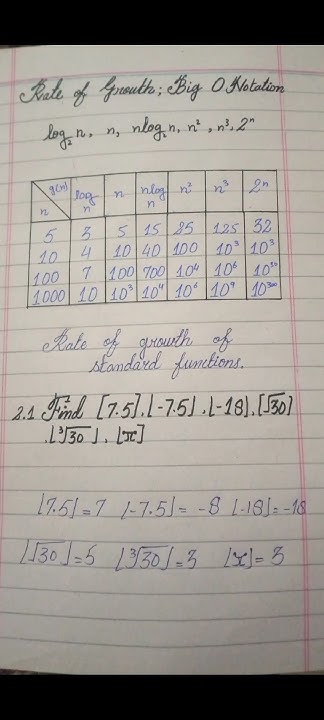 Rate of Growth; Big O Notation
log₂n, n, nlog₂n, n², n³, 2ⁿ
g(n) n log n n nlog n n² n³ 2ⁿ
5 3 5 15 25 125 32
10 4 10 40 100 10³ 10³
100 7 100 700 10⁴ 10⁶ 10³⁰
1000 10 10³ 10⁴ 10⁶ 10⁹ 10³⁰⁰
Rate of growth of
standard functions.
2.1 Find ⌊7.5⌋, ⌊-7.5⌋, ⌊-18⌋, ⌊√30⌋
, ⌊∛30⌋, ⌊π⌋
⌊7.5⌋=7 ⌊-7.5⌋= -8 ⌊-18⌋=-18
⌊√30⌋=5 ⌊∛30⌋=3 ⌊π⌋= 3